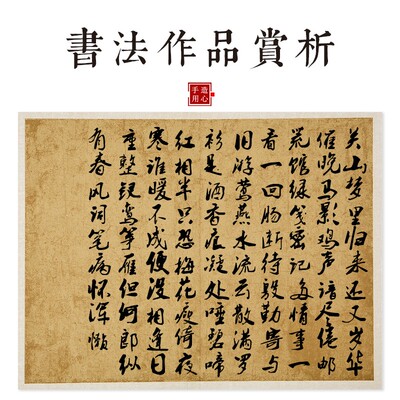 書法作品賞析
手造
用心
关山梦里归来还又岁华
催晚马影鸡声谙尽倦邮
荒馆绿笺密记多情事一
看一回肠断待殷勤寄与
旧游莺燕水流云散满罗
衫是酒香痕凝处唾碧啼
红相半只恐梅花瘦倚夜
寒谁暖不成便没相逢日
重整钗鸾筝雁但何郎纵
有春风词笔病怀浑懒